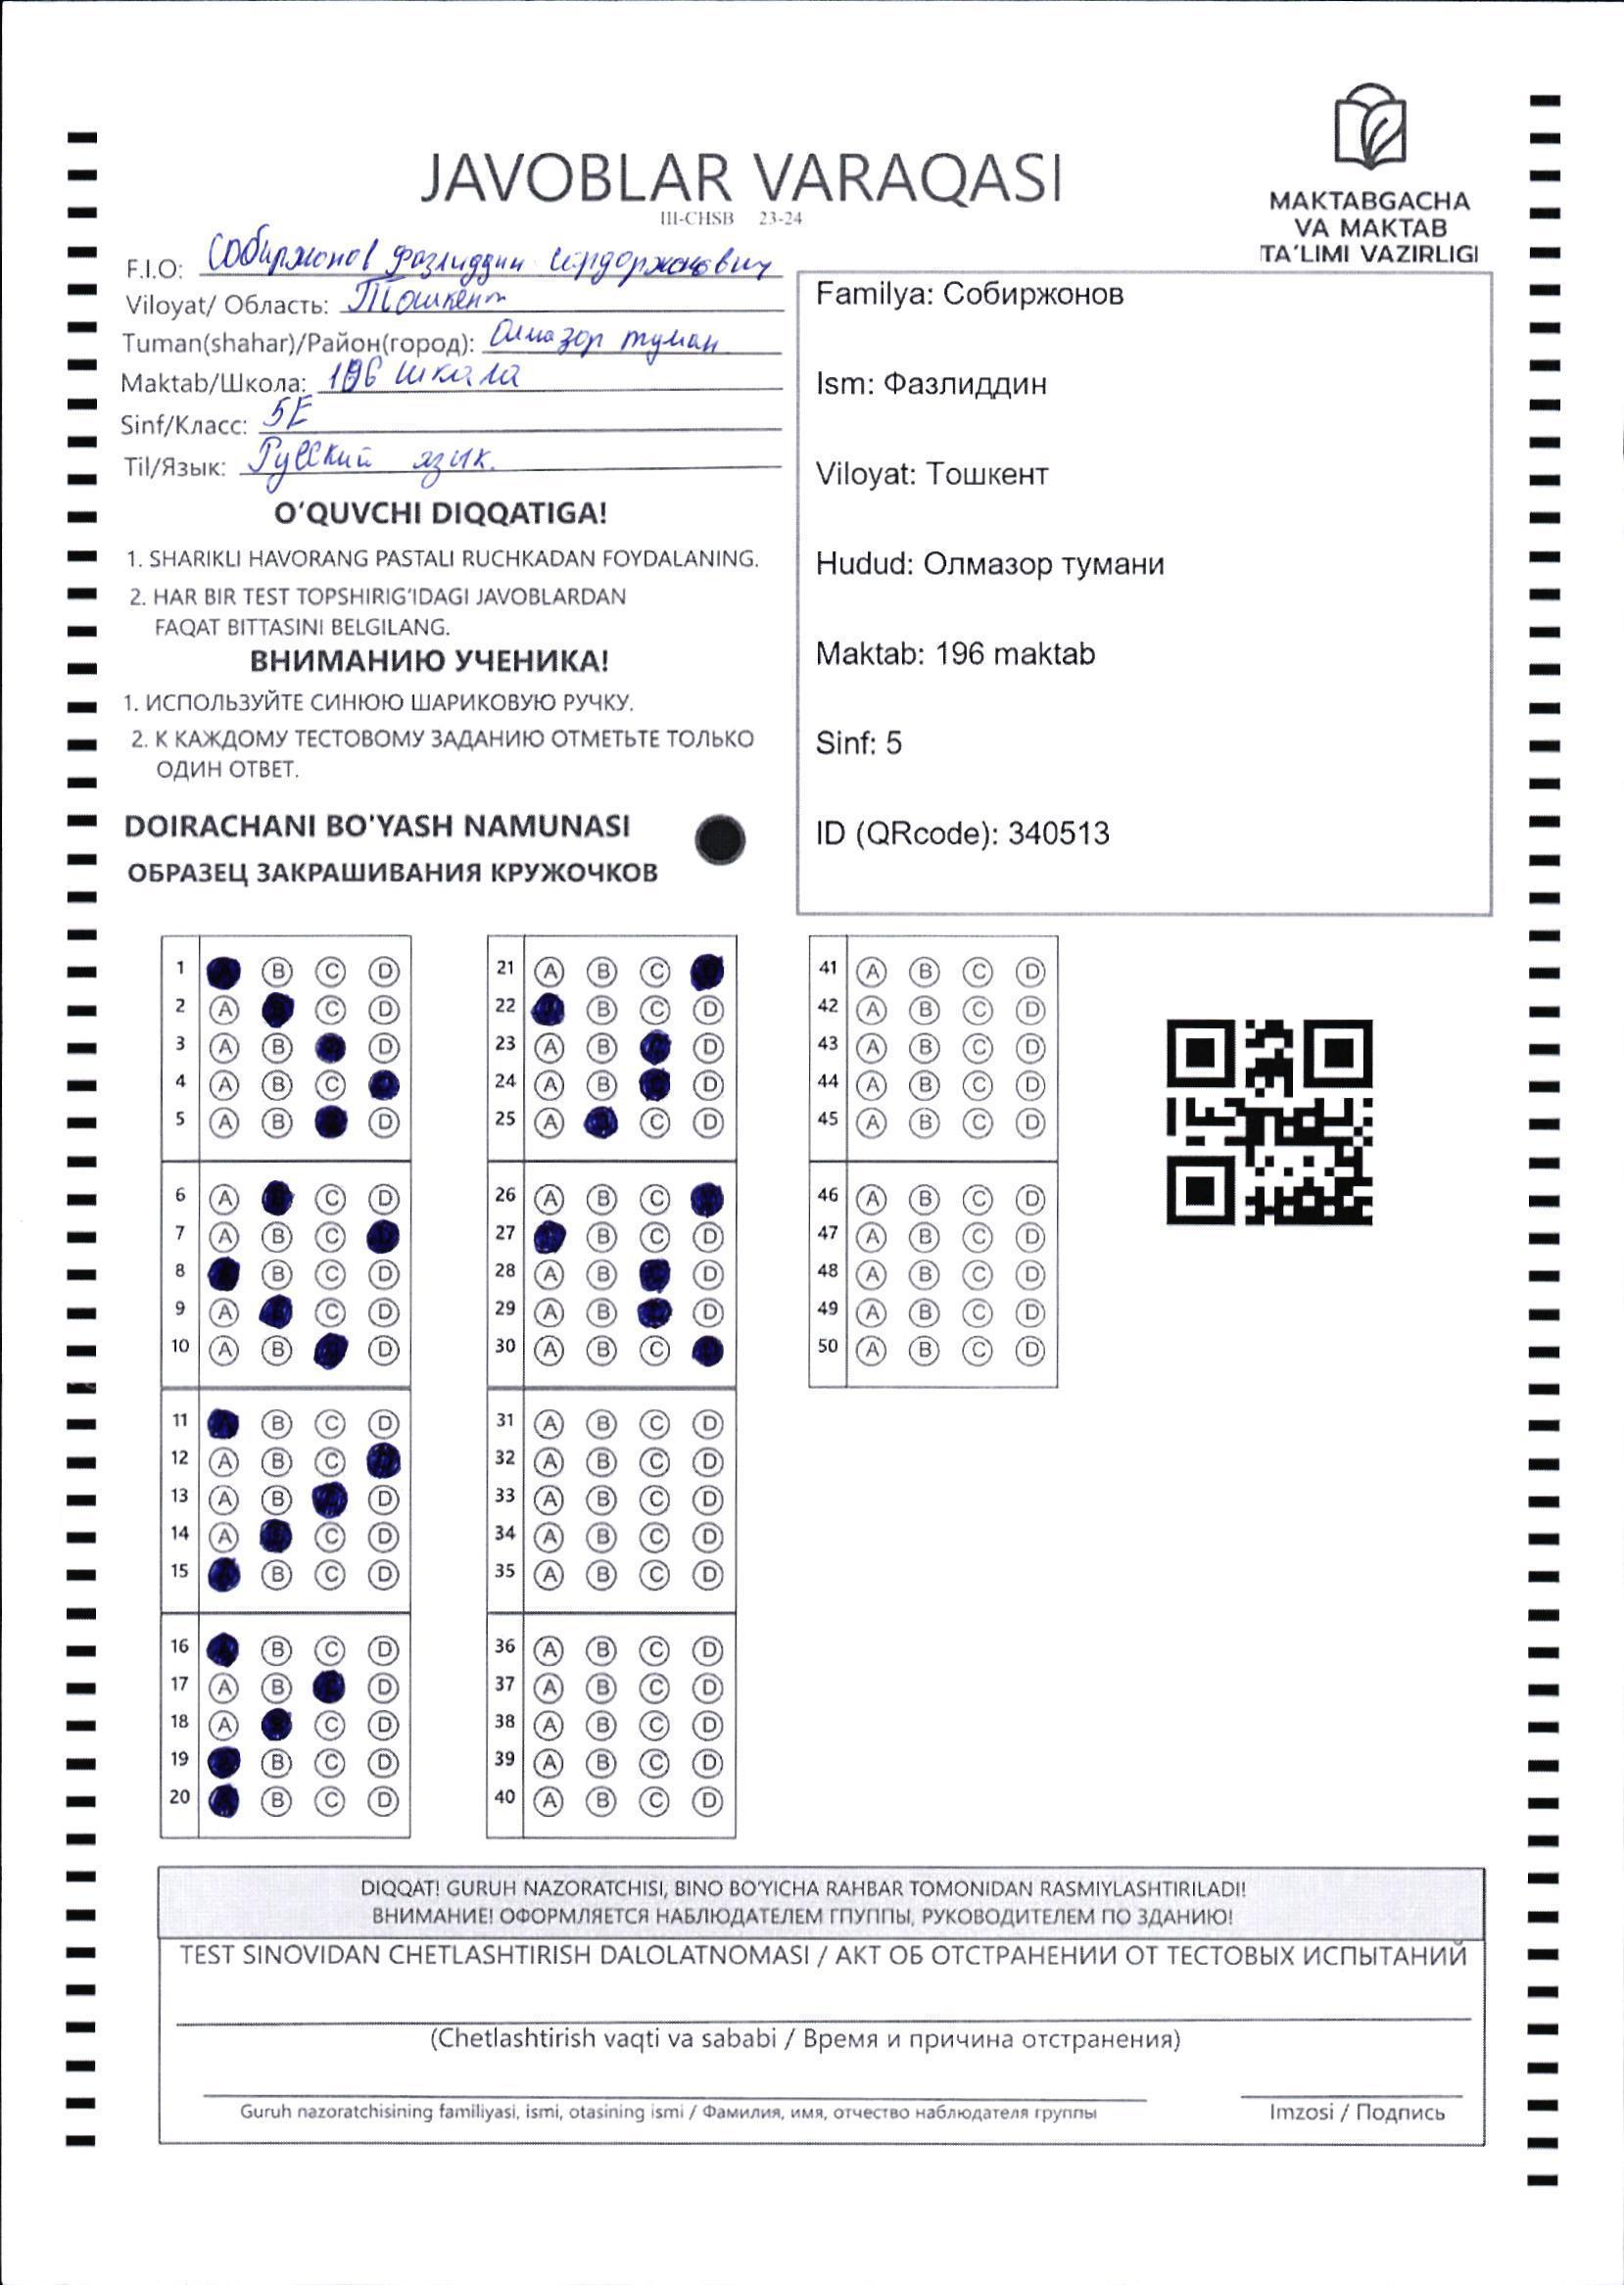 JAVOBLAR VARAQASI
III-CHSB 23-24
MAKTABGACHA
VA MAKTAB
TA'LIMI VAZIRLIGI
F.I.O: Собиржонов Фазлиддин
Viloyat/ Область: Тошкент
Tuman(shahar)/Район(город): Олмазор туман
Maktab/Школа: 196 школа
Sinf/Класс: 5Е
Til/Язык: Русский язик.
O'QUVCHI DIQQATIGA!
1. SHARIKLI HAVORANG PASTALI RUCHKADAN FOYDALANING.
2. HAR BIR TEST TOPSHIRIG'IDAGI JAVOBLARDAN
FAQAT BITTASINI BELGILANG.
ВНИМАНИЮ УЧЕНИКА!
1. ИСПОЛЬЗУЙТЕ СИНЮЮ ШАРИКОВУЮ РУЧКУ.
2. К КАЖДОМУ ТЕСТОВОМУ ЗАДАНИЮ ОТМЕТЬТЕ ТОЛЬКО
ОДИН ОТВЕТ.
DOIRACHANI BO'YASH NAMUNASI
ОБРАЗЕЦ ЗАКРАШИВАНИЯ КРУЖОЧКОВ
Familya: Собиржонов
Ism: Фазлиддин
Viloyat: Тошкент
Hudud: Олмазор тумани
Maktab: 196 maktab
Sinf: 5
ID (QRcode): 340513
1 B C D
2 A C D
3 A B D
4 A B C
5 A B D
6 A C D
7 A B C
8 B C D
9 A C D
10 A B D
11 B C D
12 A B C
13 A B D
14 A C D
15 B C D
16 B C D
17 A B D
18 A C D
19 B C D
20 B C D
21 A B C
22 B C D
23 A B D
24 A B D
25 A C D
26 A B C
27 B C D
28 A B D
29 A B D
30 A B C
31 A B C D
32 A B C D
33 A B C D
34 A B C D
35 A B C D
36 A B C D
37 A B C D
38 A B C D
39 A B C D
40 A B C D
41 A B C D
42 A B C D
43 A B C D
44 A B C D
45 A B C D
46 A B C D
47 A B C D
48 A B C D
49 A B C D
50 A B C D
DIQQAT! GURUH NAZORATCHISI, BINO BO'YICHA RAHBAR TOMONIDAN RASMIYLASHTIRILADI!
ВНИМАНИЕ! ОФОРМЛЯЕТСЯ НАБЛЮДАТЕЛЕМ ГПУППЫ, РУКОВОДИТЕЛЕМ ПО ЗДАНИЮ!
TEST SINOVIDAN CHETLASHTIRISH DALOLATNOMASI / АКТ ОБ ОТСТРАНЕНИИ ОТ ТЕСТОВЫХ ИСПЫТАНИЙ
(Chetlashtirish vaqti va sababi / Время и причина отстранения)
Guruh nazoratchisining familiyasi, ismi, otasining ismi / Фамилия, имя, отчество наблюдателя группы
Imzosi / Подпись